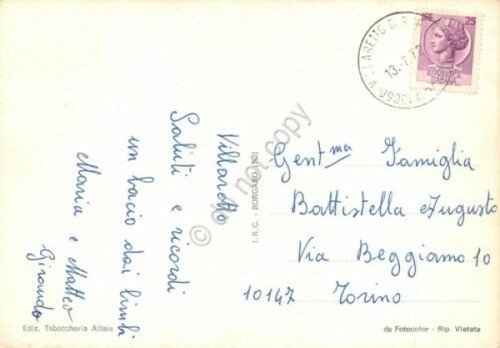 Villaretto
Saluti e ricordi
un bacio dai bimbi
Maria e Matteo
Girando
Gent.ma Famiglia
Battistella Augusto
Via Beggiamo 10
10147 Torino
I.R.C. - BORGARO (TO)
Ediz. Tabaccheria Allais
da Fotocolor - Rip. Vietata
LIRE 25
13.7.
do not copy